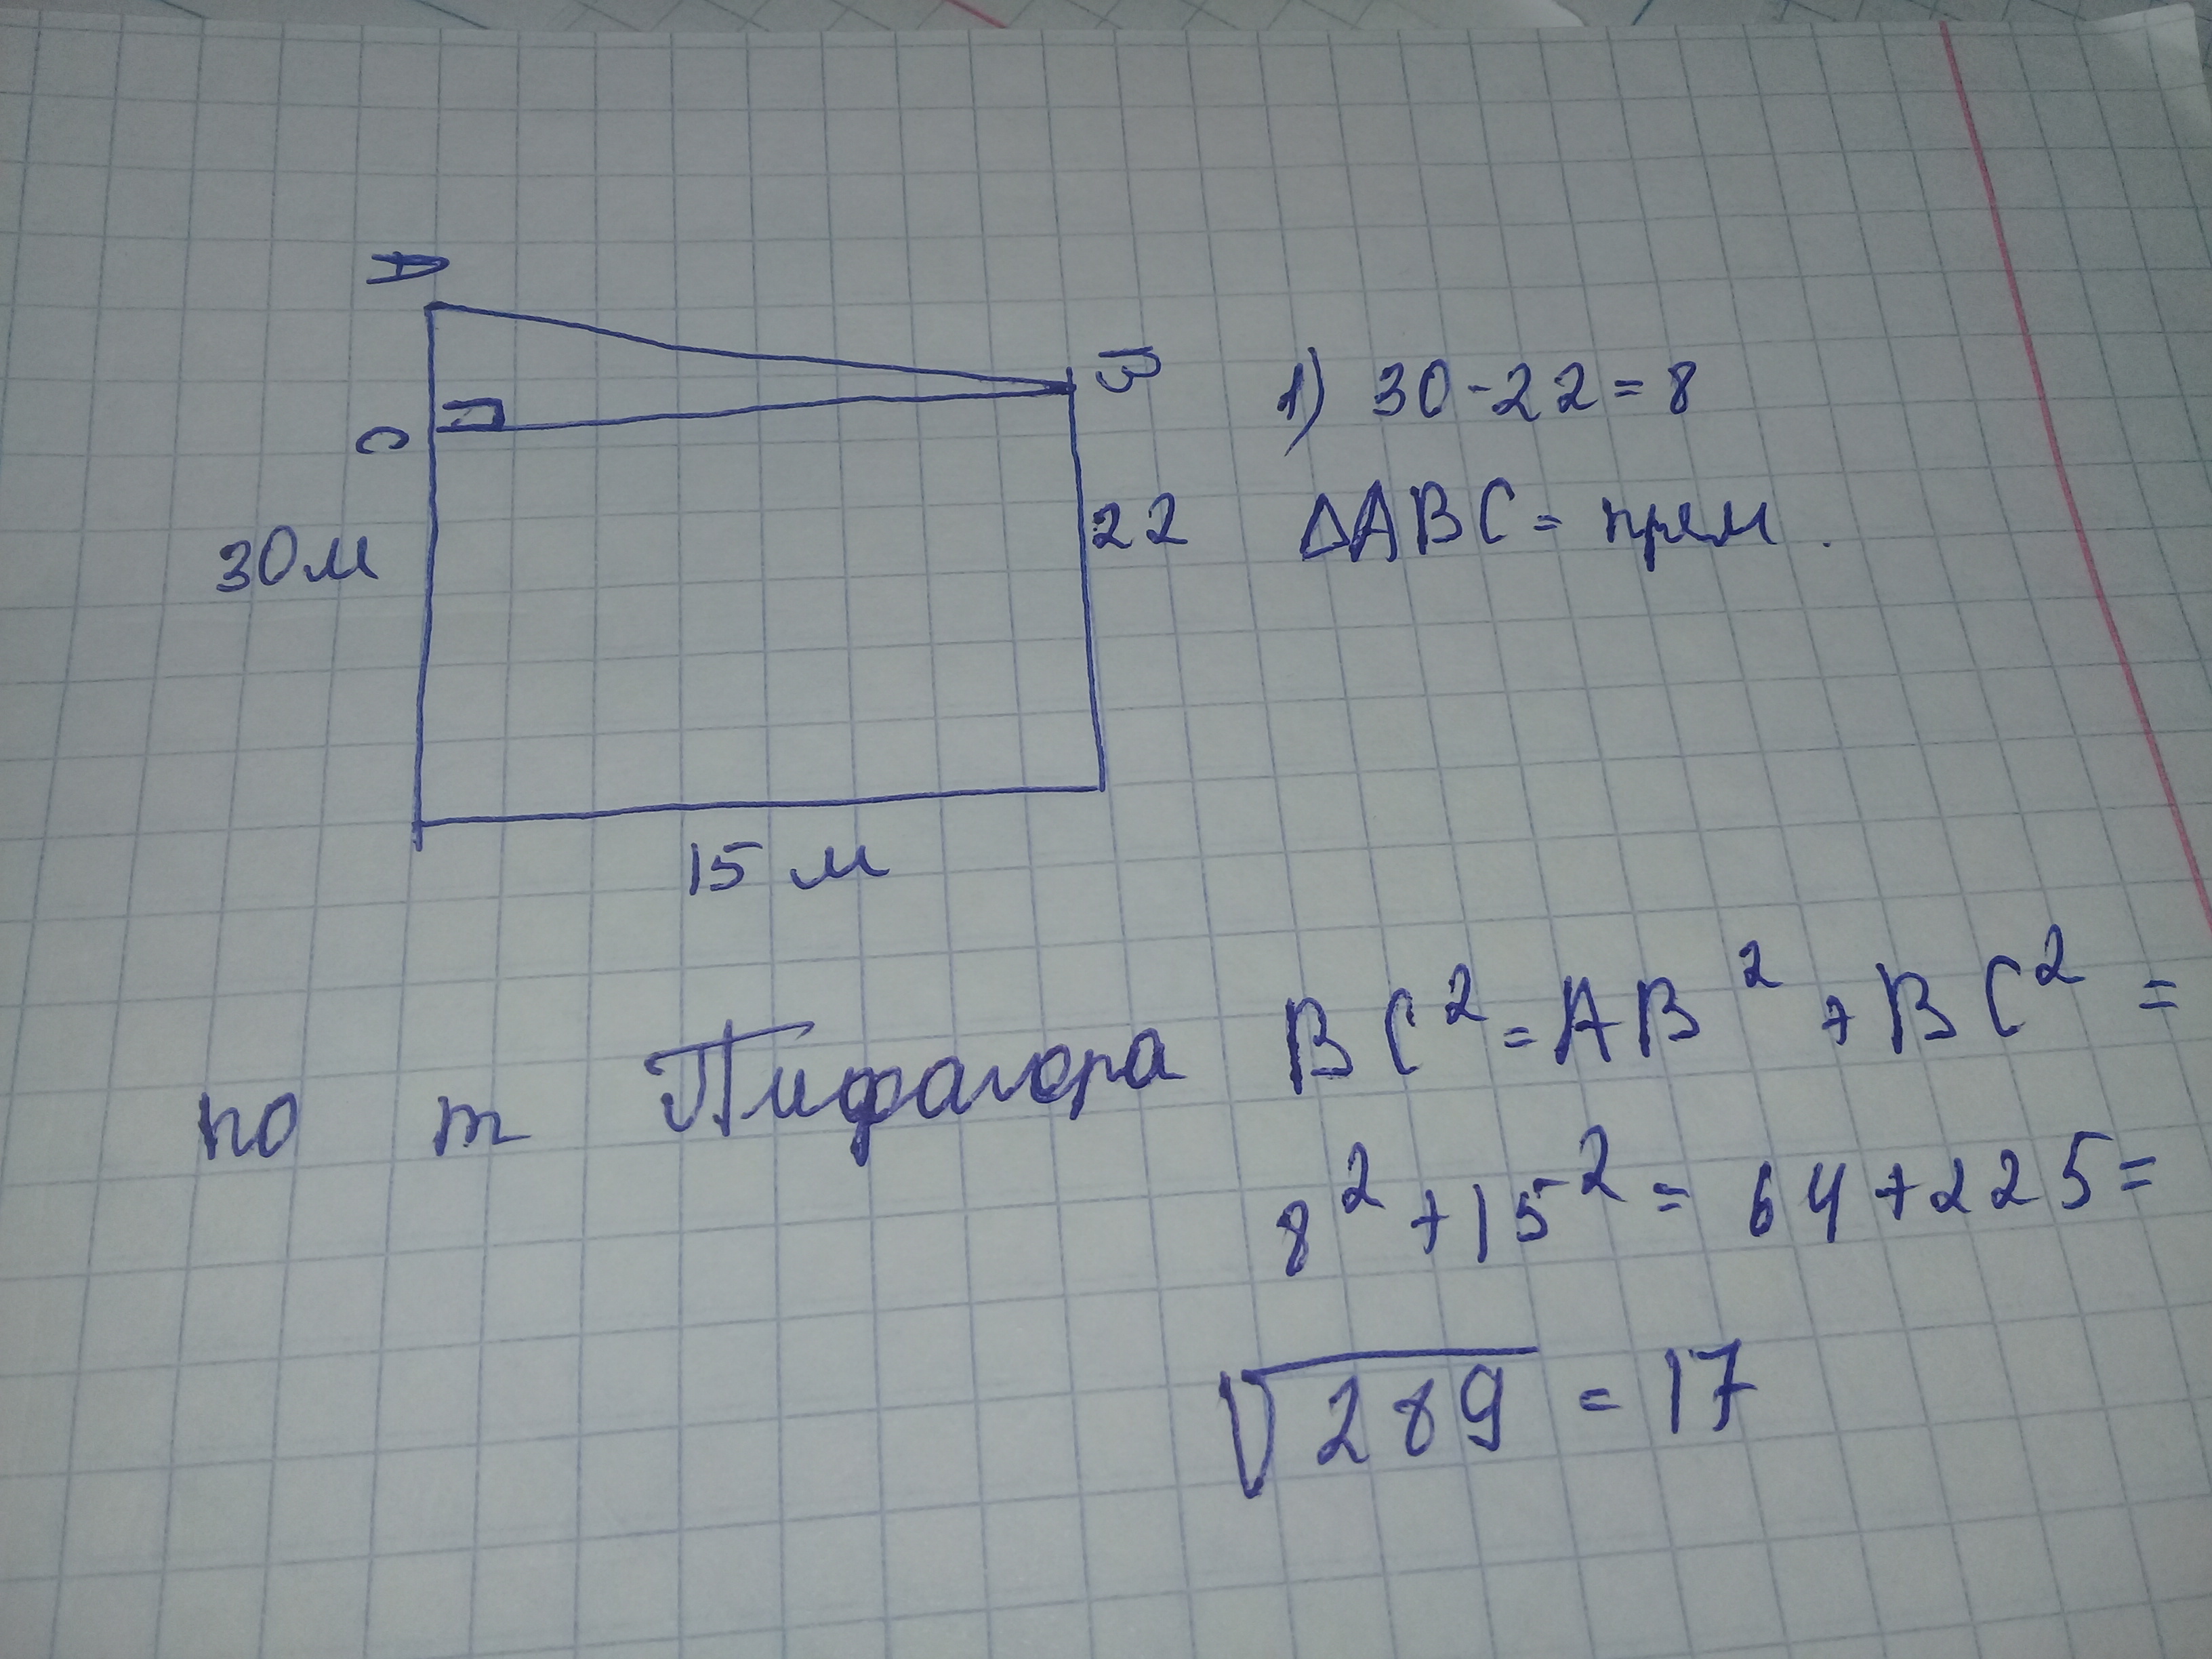 A
B
C
1) 30-22=8
30м
22
ΔABC= прям.
15 м
по т Пифагора BC²=AB²+BC²=
8²+15²= 64+225=
√289 = 17